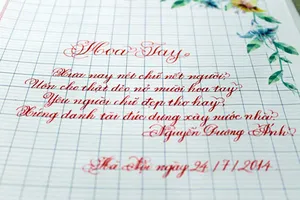 Hoa Tay
Xưa nay nét chữ nết người
Uốn cho thật dẻo nở mười hoa tay
Yêu người chữ đẹp thơ hay
Xứng danh tài đức dựng xây nước nhà
Nguyễn Dương Anh
Hà Nội ngày 24/7/2014